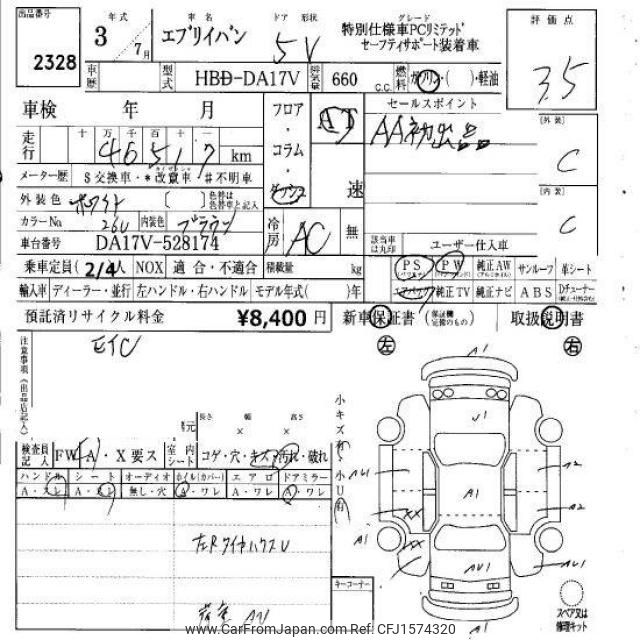 出品番号
2328
年式
3
7月
車名
エブリイバン
ドア 形状
5V
グレード
特別仕様車PCリミテッド
セーフティサポート装着車
評価点
3.5
車歴
型式
HBD-DA17V
排気量
660
C.C.
燃料
ガソリン・( )・軽油
車検 年 月
フロア・コラム・ダッシュ
AT
速
セールスポイント
AA初出品
走行
十 万 千 百 十 一
46517
km
メーター歴
$交換車・*改竄車・#不明車
外装色
ホワイト
〔 〕
色替は色替車と記入
カラーNo
26U
内装色
ブラウン
冷房
AC
無
車台番号
DA17V-528174
該当車は丸印
ユーザー仕入車
[外装]
C
[内装]
C
乗車定員
2/4人
NOX
適合・不適合
積載量
kg
PS
PW
純正AW
サンルーフ
革シート
輸入車
ディーラー・並行
左ハンドル・右ハンドル
モデル年式( )年
エアバック
純正TV
純正ナビ
ABS
Dチューナー
預託済リサイクル料金
¥8,400円
新車保証書
(保証継承可能のもの)
取扱説明書
注意事項(出品店記入)
ETC
左
右
長さ 幅 高さ
× ×
小キズ有・小U有
検査員記入
FW
A・X要ス
室内シート
コゲ・穴・キズ・汚れ・破れ
ハンドル
シート
オーディオ
ホイル(カバー)
エアロ
ドアミラー
A・スレ
A・スレ
無し・穴
A・ワレ
A・ワレ
A・ワレ
キーコーナー
スペア又は修理キット
A1
U1
A1
AU1
A2
A2
XX
XX
A1
AU1
AU1
A1
www.CarFromJapan.com CFJ1574320